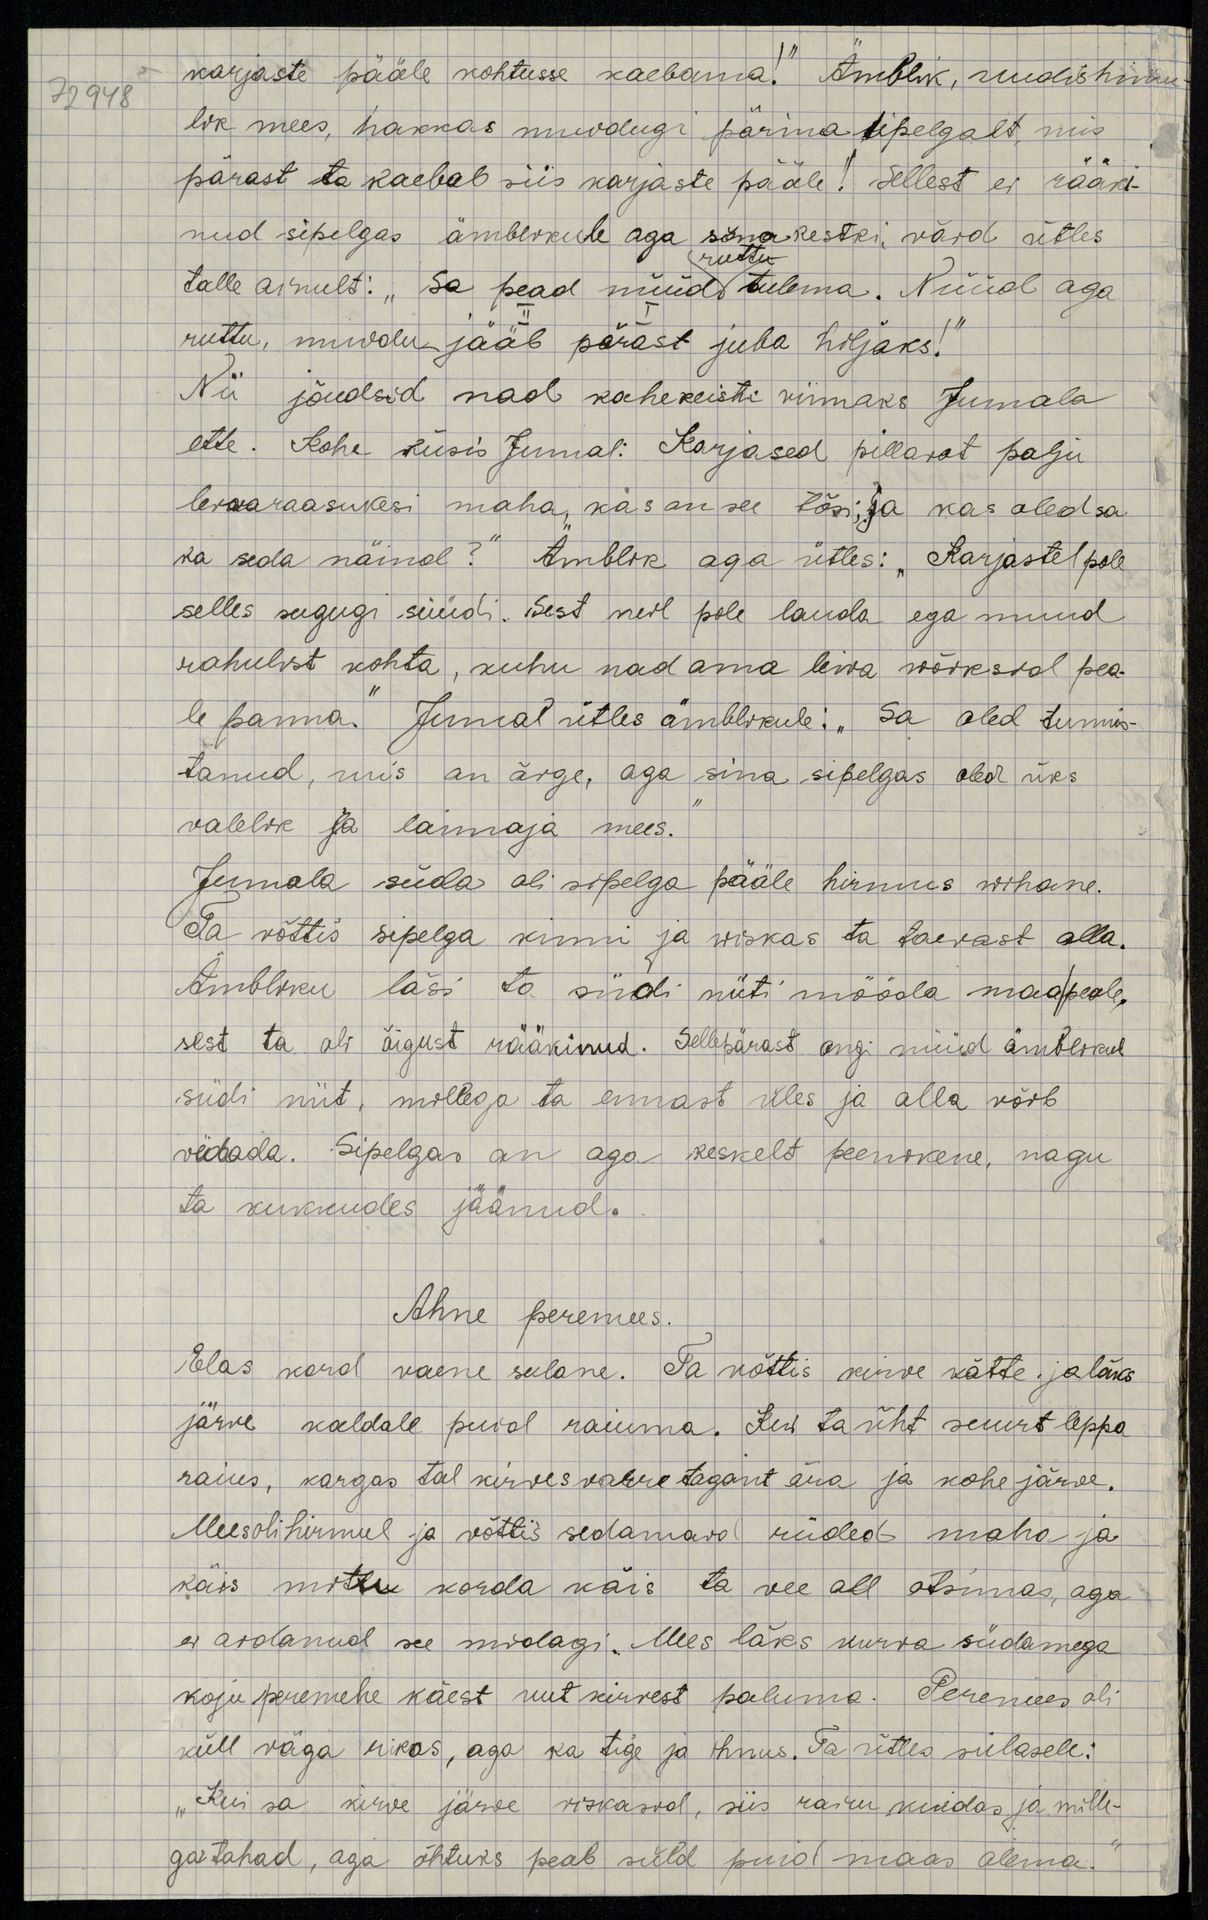 72948
karjaste pääle kohtusse kaebama!" Ämblik, uudishimu-
lik mees, hakkas muidugi pärima sipelgalt, mis
pärast ta kaebab siis karjaste pääle! Sellest ei rääki-
nud sipelgas ämblikule aga sõnakestki, vaid ütles
ruttu
talle ainult: „Sa pead nüüd tulema. Nüüd aga
II I
ruttu, muidu jääb pärast juba hiljaks!"
Nii jõudsid nad kahekeisti viimaks Jumala
ette. Kohe küsis Jumal: Karjased pillavat palju
leivaraasukesi maha, „kas on see tõsi, ja kas oled sa
ka seda näind?" Ämblik aga ütles: „Karjastel pole
selles sugugi süüdi. Sest neil pole lauda ega muud
rahulist kohta, kuhu nad oma leiva võiksid pea-
le panna." Jumal ütles ämblikule: „Sa oled tunnis-
tanud, mis on õige, aga sina sipelgas oled üks
valelik ja laimaja mees."
Jumala süda oli sipelga pääle hirmus wihane.
Ta võttis sipelga kinni ja viskas ta taevast alla.
Ämbliku lasi ta siidi niiti mööda maa peale,
sest ta oli õigust rääkinud. Sellepärast ongi nüüd ämblikul
siidi niit, millega ta ennast üles ja alla võib
vedada. Sipelgas on aga keskelt peenikene, nagu
ta kukkudes jäänud.
Ahne peremees.
Elas kord vaene sulane. Ta võttis kirve kätte ja läks
järve kaldale puid raiuma. Kui ta üht suurt leppa
raius, kargas tal kirves varre tagant ära ja kohe järve.
Mees oli hirmul ja võttis sedamaid riided maha ja
käis mitu korda käis ta vee all otsimas, aga
ei aidanud see midagi. Mees läks kurva südamega
koju peremehe käest uut kirvest paluma. Peremees oli
küll väga rikas, aga ka tige ja ihnus. Ta ütles sulasele:
„Kui sa kirve järve viskasid, siis raiu kuidas ja mille-
ga tahad, aga õhtuks peab süld puid maas olema."